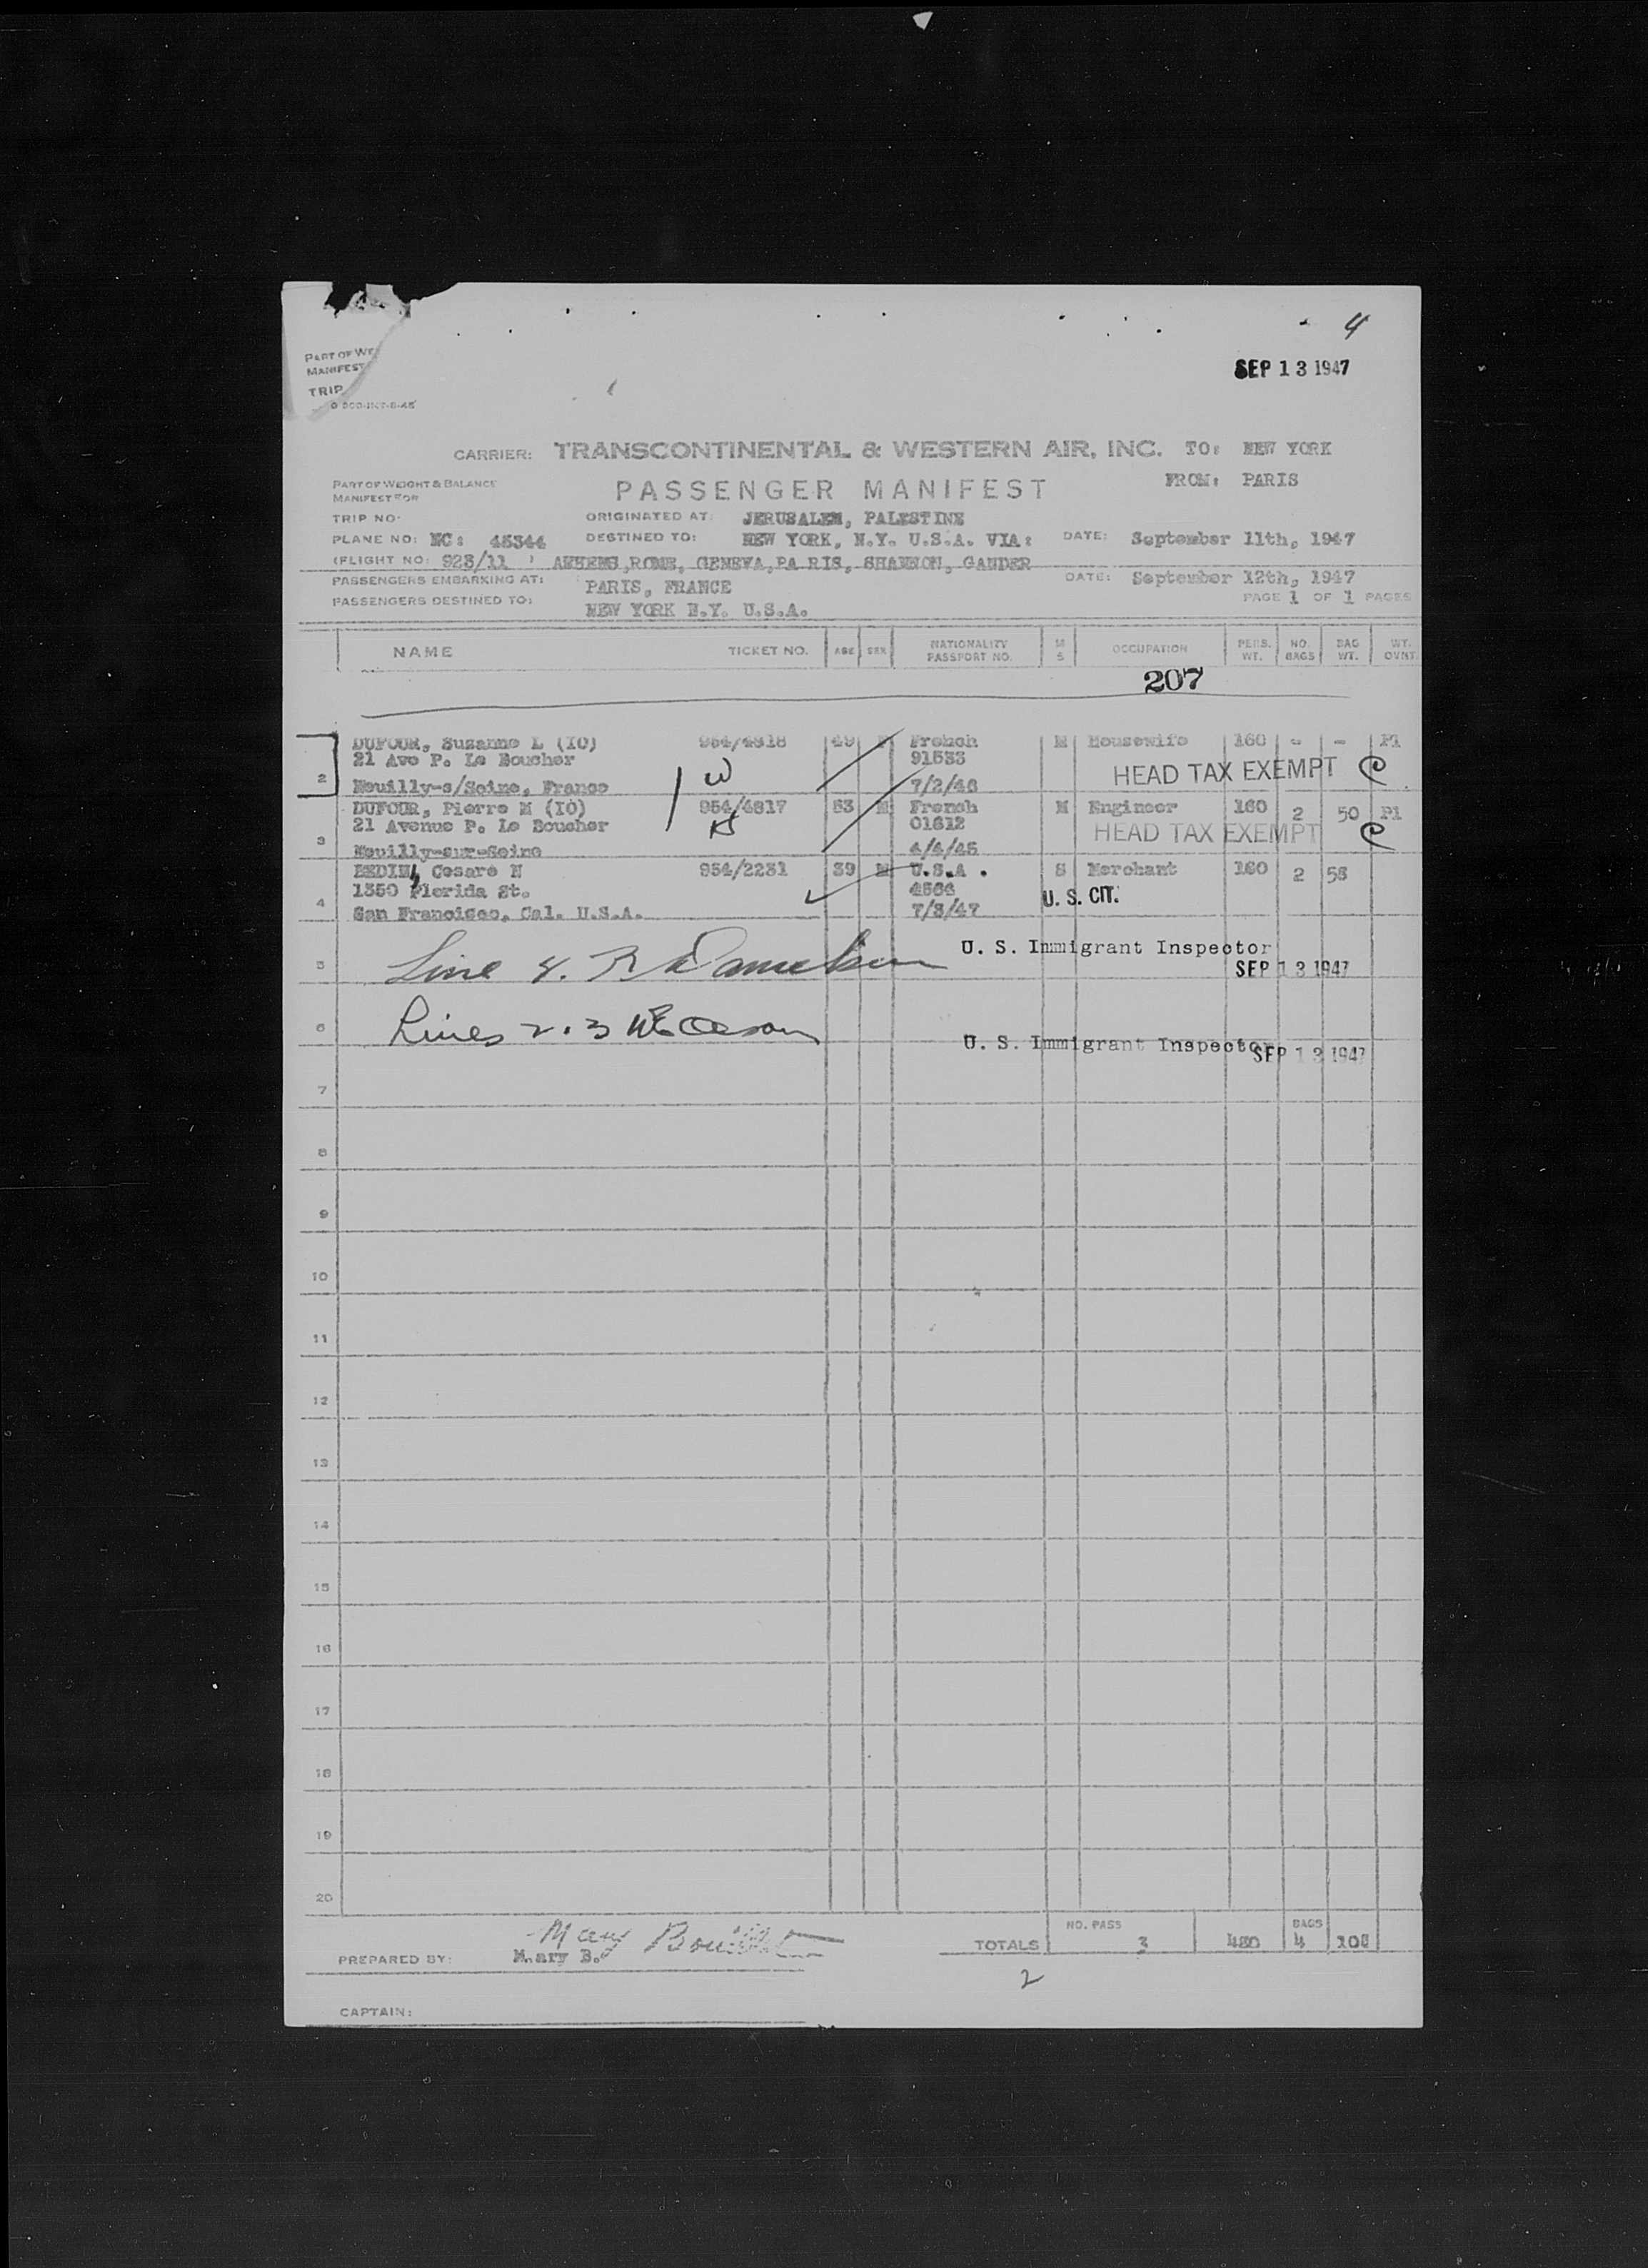 4
SEP 13 1947
PART OF WE
MANIFEST
TRIP
CARRIER: TRANSCONTINENTAL & WESTERN AIR, INC. TO: NEW YORK
PART OF WEIGHT & BALANCE MANIFEST FOR PASSENGER MANIFEST FROM: PARIS
TRIP NO. ORIGINATED AT: JERUSALEM, PALESTINE
PLANE NO: NC: 45344 DESTINED TO: NEW YORK, N.Y. U.S.A. VIA: DATE: September 11th, 1947
(FLIGHT NO: 923/11 ) ATHENS, ROME, GENEVA, PA RIS, SHANNON, GANDER
PASSENGERS EMBARKING AT: PARIS, FRANCE DATE: September 12th, 1947
PASSENGERS DESTINED TO: NEW YORK N.Y. U.S.A. PAGE 1 OF 1 PAGES
NAME TICKET NO. AGE SEX NATIONALITY PASSPORT NO. M S OCCUPATION PERS. WT. NO. BAGS BAG WT. WT. OVNT.
207
DUFOUR, Suzanne L (IO) 954/4818 49 F French M Housewife 160 - - P1
21 Ave P. Le Boucher 91533
2 Neuilly-s/Seine, France W 7/2/46 HEAD TAX EXEMPT C
DUFOUR, Pierre M (IO) 954/4817 53 M French M Engineer 160 2 50 P1
21 Avenue P. Le Boucher 01612 HEAD TAX EXEMPT C
3 Neuilly-sur-Seine 4/4/45
BEDINI, Cesare N 954/2231 39 M U.S.A. S Merchant 160 2 58
1350 Florida St. 4564 U. S. CIT.
4 San Francisco, Cal. U.S.A. 7/3/47
5 Line 4. R Danielson U. S. Immigrant Inspector SEP 13 1947
6 Lines 2.3 U. S. Immigrant Inspector SEP 13 1947
7
8
9
10
11
12
13
14
15
16
17
18
19
20
PREPARED BY: Mary B. TOTALS NO. PASS 3 480 BAGS 4 108
2
CAPTAIN: